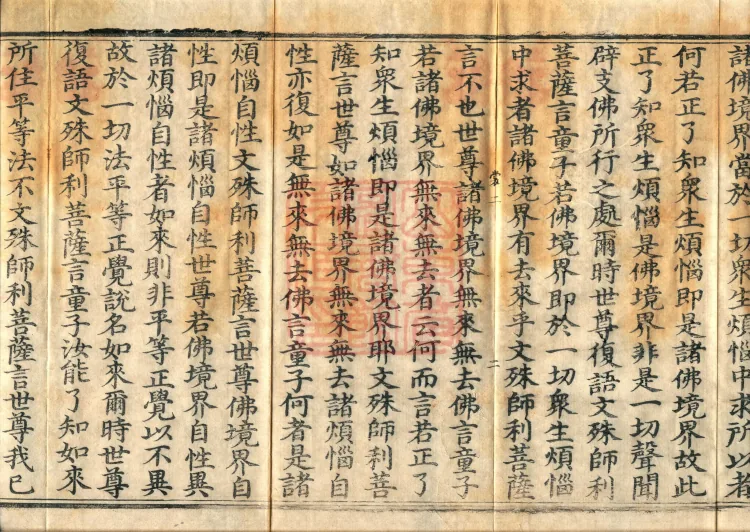 諸佛境界當於一切衆生煩惱中求所以者
何若正了知衆生煩惱即是諸佛境界故此
正了知衆生煩惱是佛境界非是一切聲聞
辟支佛所行之處爾時世尊復語文殊師利
菩薩言童子若佛境界即於一切衆生煩惱
中求者諸佛境界有去來乎文殊師利菩薩
二
言不也世尊諸佛境界無來無去佛言童子
若諸佛境界無來無去者云何而言若正了
知衆生煩惱即是諸佛境界耶文殊師利菩
薩言世尊如諸佛境界無來無去諸煩惱自
性亦復如是無來無去佛言童子何者是諸
煩惱自性文殊師利菩薩言世尊佛境界自
性即是諸煩惱自性世尊若佛境界自性異
諸煩惱自性者如來則非平等正覺以不異
故於一切法平等正覺說名如來爾時世尊
復語文殊師利菩薩言童子汝能了知如來
所住平等法不文殊師利菩薩言世尊我已